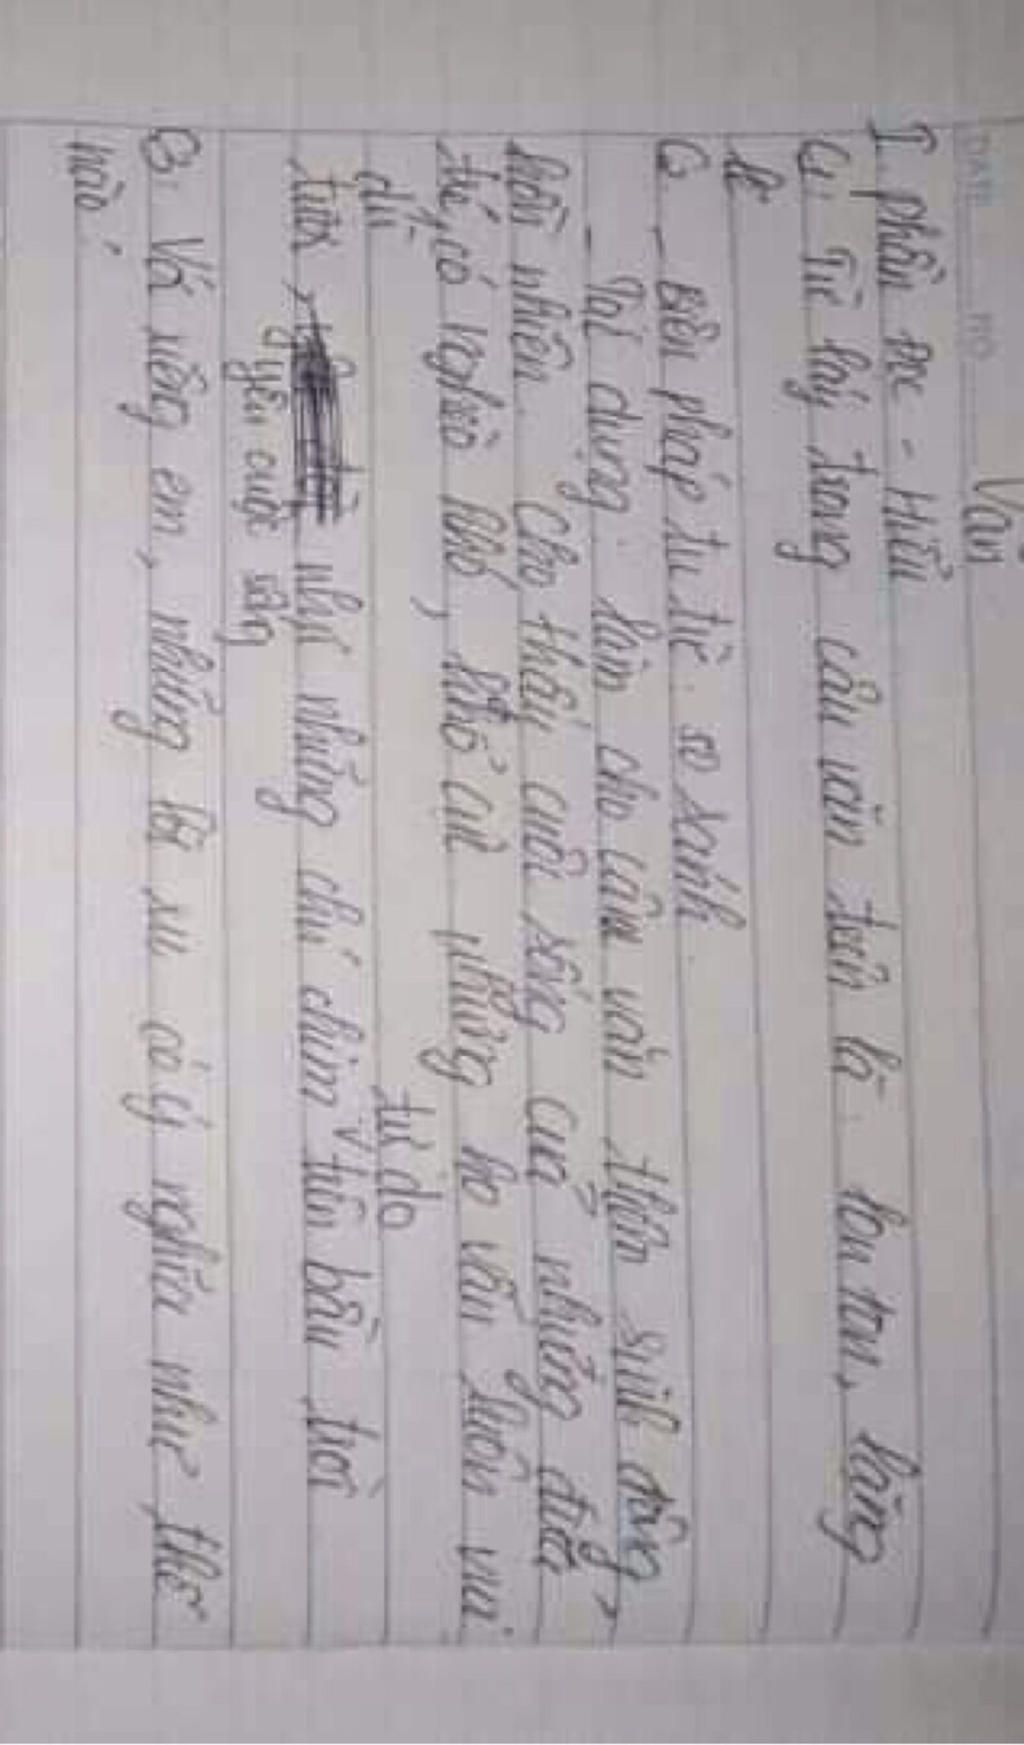 Văn
DATE NO
I. phần đọc - Hiểu
C1. Từ láy trong câu văn trên là: lon ton, lăng
C2. - Biện pháp tu từ: so sánh
- Tác dụng: làm cho câu văn thêm sinh động,
hồn nhiên. Cho thấy cuộc sống của những đứa
trẻ, có nghèo khó, khổ cực nhưng họ vẫn luôn vui
dù
tươi như những chú chim tự do trên bầu trời
yêu cuộc sống
C3. Vs riêng em, những ký ức có ý nghĩa như thế
nào?